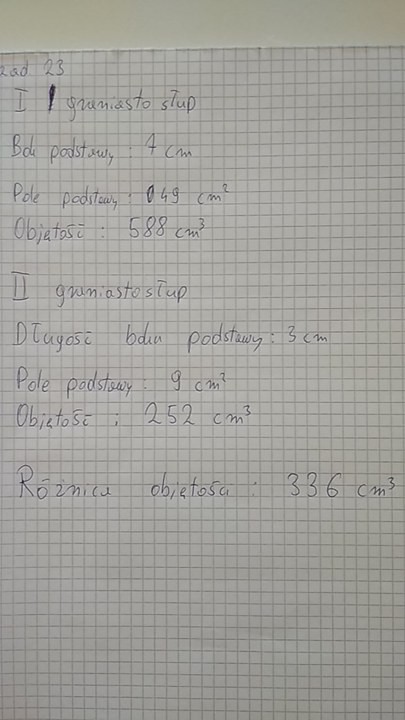 zad 23
I graniastosłup
Bok podstawy : 7 cm
Pole podstawy : 49 cm²
Objętość : 588 cm³
II graniastosłup
Długość boku podstawy : 3 cm
Pole podstawy : 9 cm²
Objętość : 252 cm³
Różnica objętości : 336 cm³